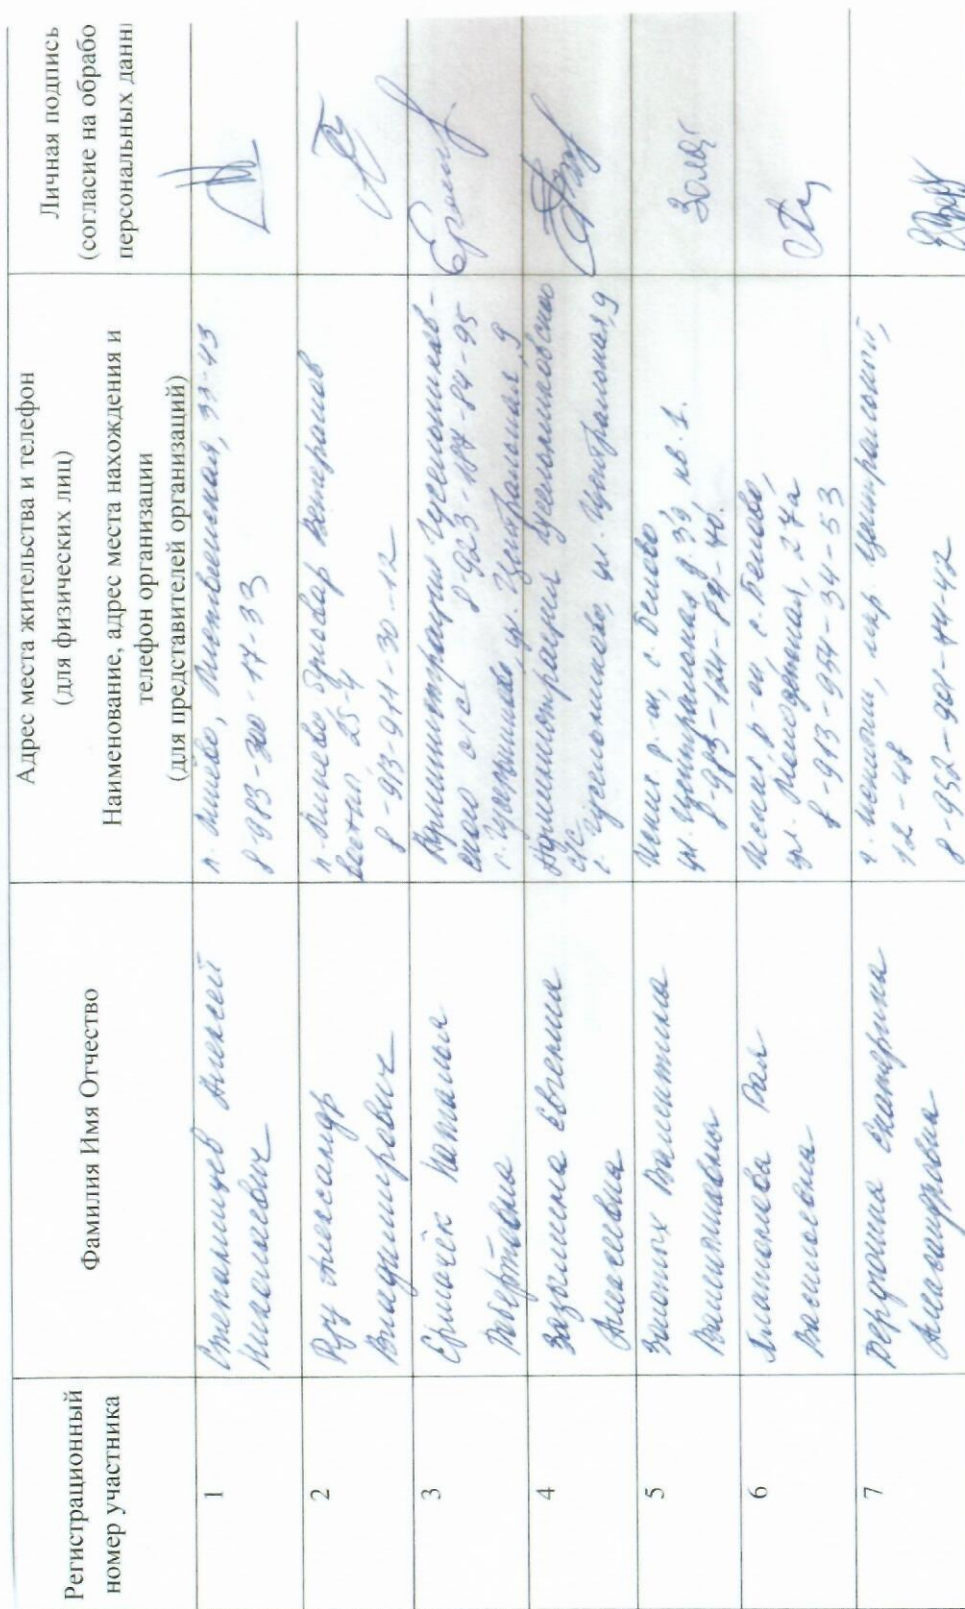 Регистрационный
номер участника
Фамилия Имя Отчество
Адрес места жительства и телефон
(для физических лиц)
Наименование, адрес места нахождения и
телефон организации
(для представителей организаций)
Личная подпись
(согласие на обрабо
персональных данн
1
Степанищев Алексей
Николаевич
п. Линево, Листвянская, 33-43
8-983-300-17-33
2
Александр
Владимирович
п. Линево Бульвар Ветеранов
25-4
8-913-911-30-12
3
Ермачёк Наталья
Робертовна
Администрация Гусельников-
ского с/с 8-923-187-84-95
ул. Центральная, 9
4
Евгения
Алексеевна
Администрация Гусельниковского
с/с
с. Гусельниково, ул. Центральная, 9
5
Валентина
Валентиновна
Искит. р-н, с. Белово
ул. Центральная д. 39, кв. 1.
6
Рая
Васильевна
Искит р-н, с. Белово,
ул. Молодежная, 27а
8-913-954-34-53
7
Дердюшна Екатерина
Александровна
г. Искитим, мкр. Центральный,
12-48
8-952-901-44-42